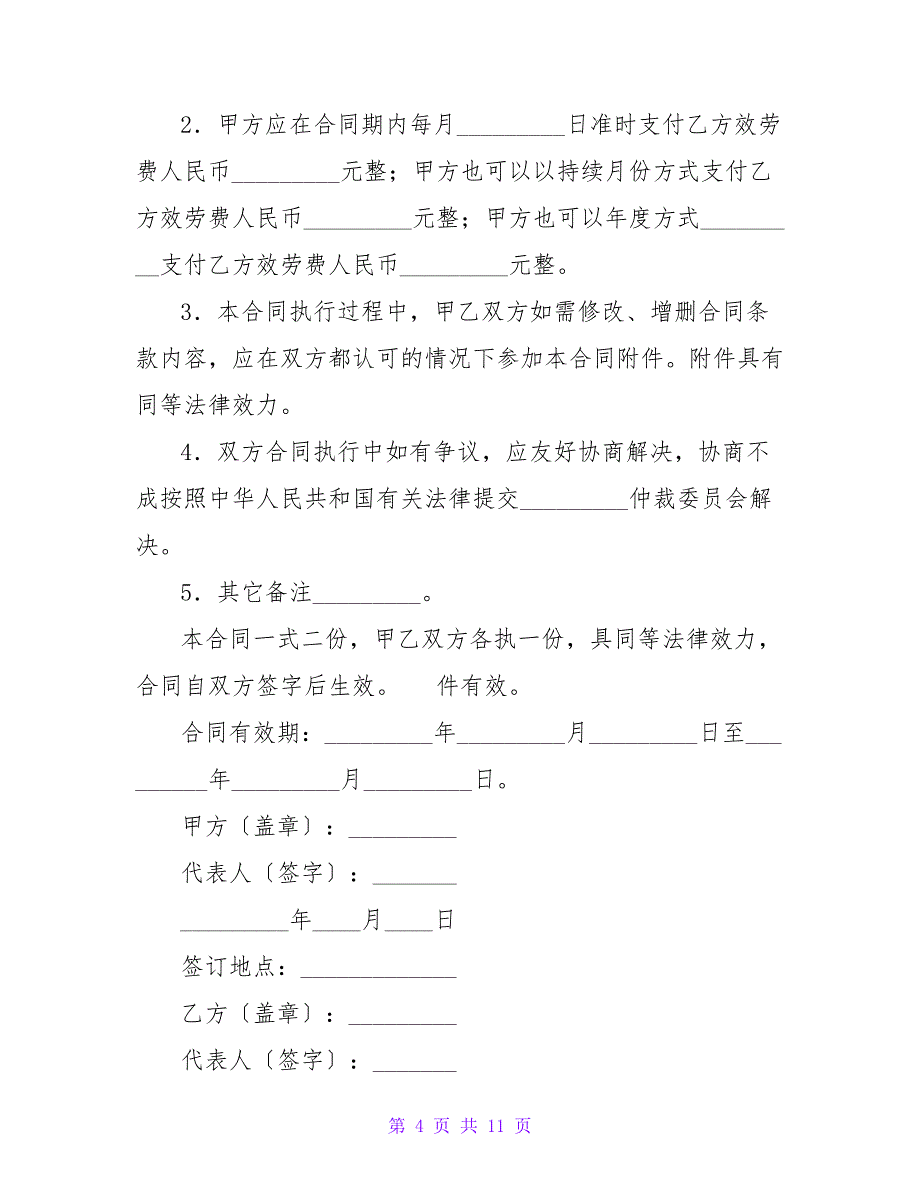 2．甲方应在合同期内每月_________日准时支付乙方效劳
费人民币_________元整；甲方也可以以持续月份方式支付乙
方效劳费人民币_________元整；甲方也可以年度方式_______
__支付乙方效劳费人民币_________元整。
3．本合同执行过程中，甲乙双方如需修改、增删合同条
款内容，应在双方都认可的情况下参加本合同附件。附件具有
同等法律效力。
4．双方合同执行中如有争议，应友好协商解决，协商不
成按照中华人民共和国有关法律提交_________仲裁委员会解
决。
5．其它备注_________。
本合同一式二份，甲乙双方各执一份，具同等法律效力，
合同自双方签字后生效。 件有效。
合同有效期：_________年_________月_________日至___
______年_________月_________日。
甲方〔盖章〕：_________
代表人〔签字〕：_______
_________年____月____日
签订地点：_____________
乙方〔盖章〕：_________
代表人〔签字〕：_______
第 4 页 共 11 页